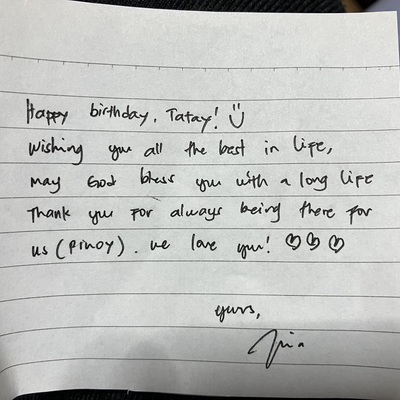 Happy birthday, Tatay! Ü
Wishing you all the best in life,
may God bless you with a long life
Thank you for always being there for
us (pinoy). we love you! ♡♡♡
yours,